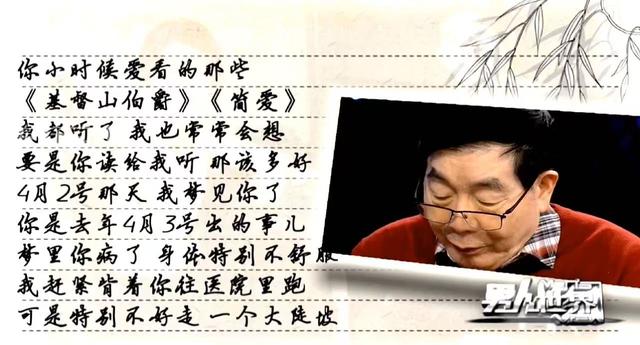 你小时候爱看的那些
《基督山伯爵》《简爱》
我都听了 我也常常会想
要是你读给我听 那该多好
4月2号那天 我梦见你了
你是去年4月3号出的事儿
梦里你病了 身体特别不舒服
我赶紧背着你往医院里跑
可是特别不好走 一个大陡坡
男人世界